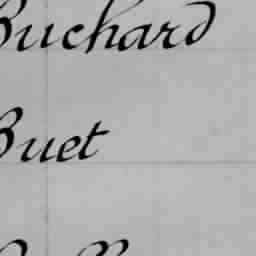 Buchard
Buet